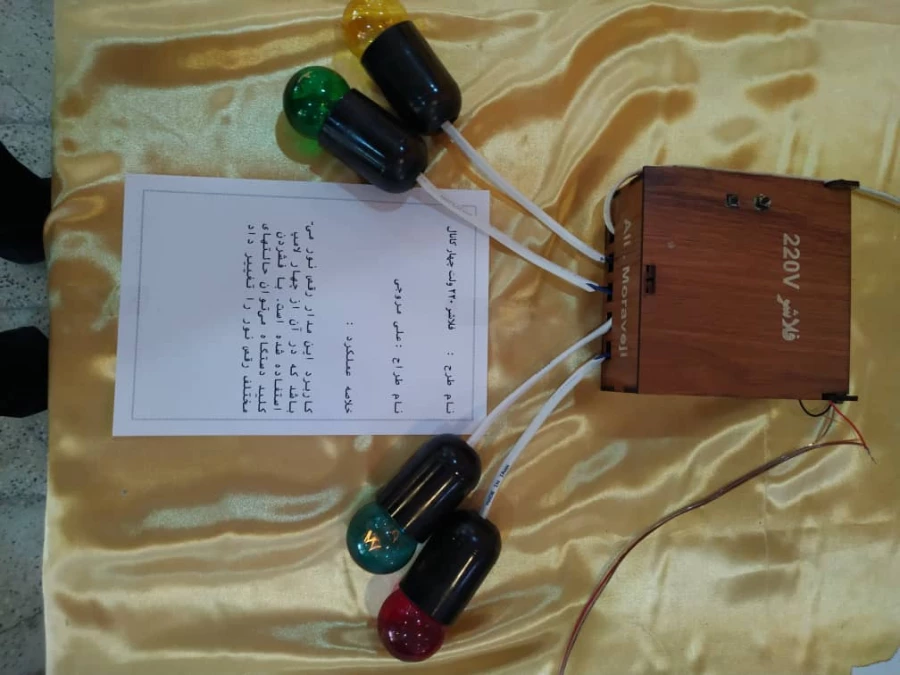 نام طرح : فلاشر ۲۲۰ ولت چهار کانال
نام طراح : علی مروجی
خلاصه عملکرد :
کاربرد این مدار رقص نور می‌
باشد که در آن از چهار لامپ
استفاده شده است. با فشردن
کلید دستگاه می‌توان حالتهای
مختلف رقص نور را تغییر داد
فلاشر 220V
Ali . Moraveji
MADE IN IRAN
W